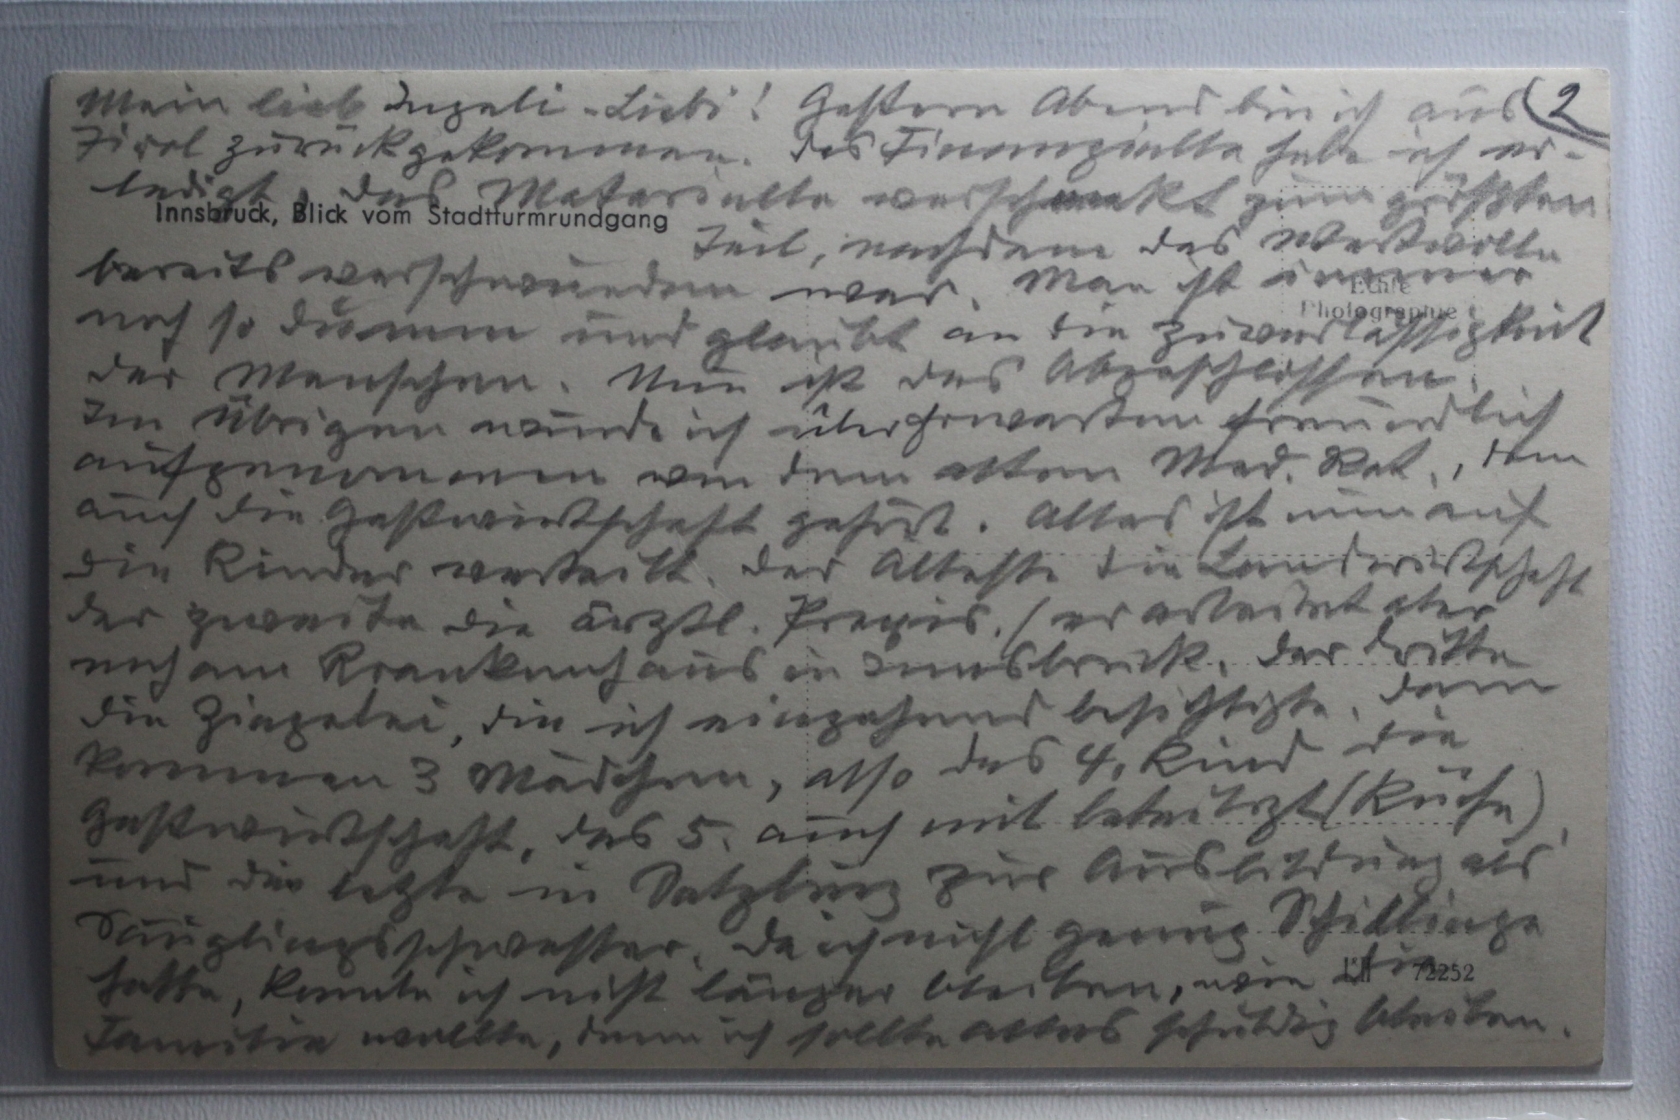 Mein lieb Ingeli-Liebi! Gestern Abend bin ich aus (2
Tirol zurückgekommen. Das Finanzielle habe ich er-
ledigt, das Materielle verschenkt zum größten
Innsbruck, Blick vom Stadtturmrundgang
Teil, nachdem das Wertvolle
bereits verschwunden war. Man ist immer
Echte
Photographie
noch so dumm und glaubt an die Zuverlässigkeit
der Menschen. Nun ist das Abgeschlossen.
Im Übrigen wurde ich über Erwarten freundlich
aufgenommen von dem alten Med. Rat., dem
auch die Gastwirtschaft gehört. Alles ist nun auf
die Kinder verteilt. Der Älteste die Landwirtschaft
der zweite die ärztl. Praxis, / er arbeitet aber
noch am Krankenhaus in Innsbruck, der dritte
die Ziegelei, die ich eingehend besichtigte, dann
kommen 3 Mädchen, also das 4. Kind die
Gastwirtschaft, das 5. auch mit beteiligt (Küche),
und die letzte in Salzburg zur Ausbildung als
Säuglingsschwester. Da ich nicht genug Schillinge
hatte, konnte ich nicht länger bleiben, wie die
72252
Familie wollte, denn ich sollte alles schuldig bleiben.